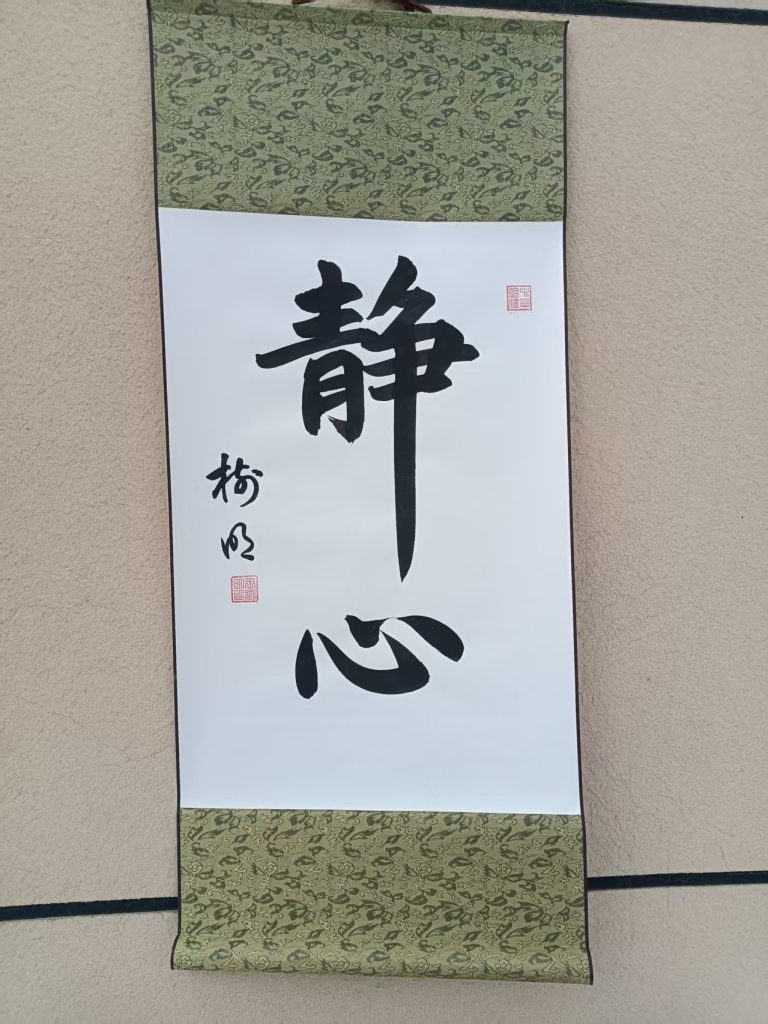 静心
树明